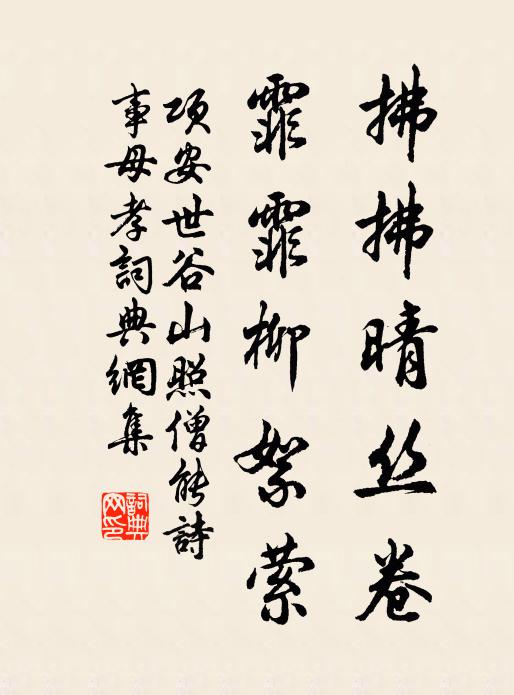 拂拂晴丝卷
霏霏柳絮萦
项安世谷山照僧能詩
事母孝詞典網集
詞典網印